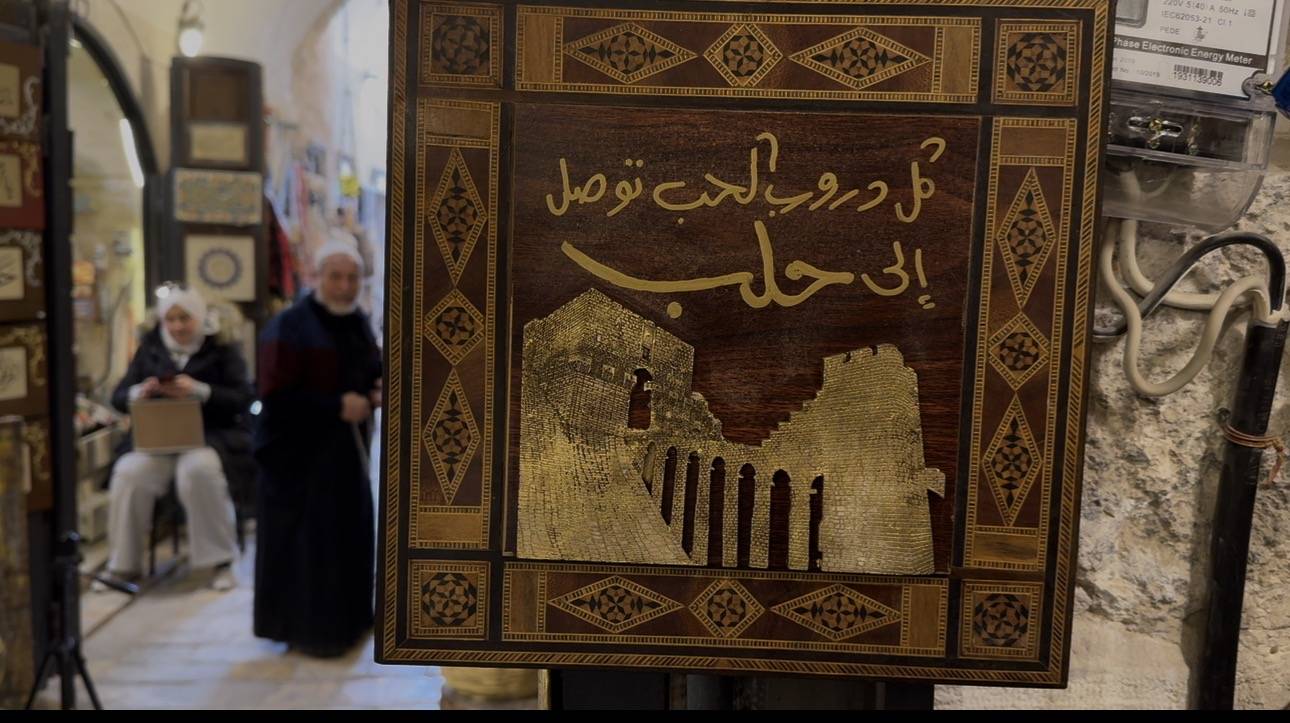 كل دروب الحب توصل
إلى حلب
220V 5(40)A 50Hz
IEC62053-21 Cl.1
PEDE
Phase Electronic Energy Meter
1931139006